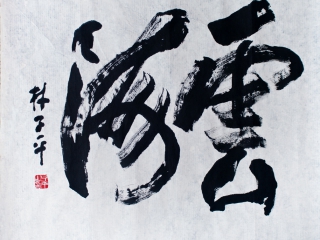 雲海
林子平